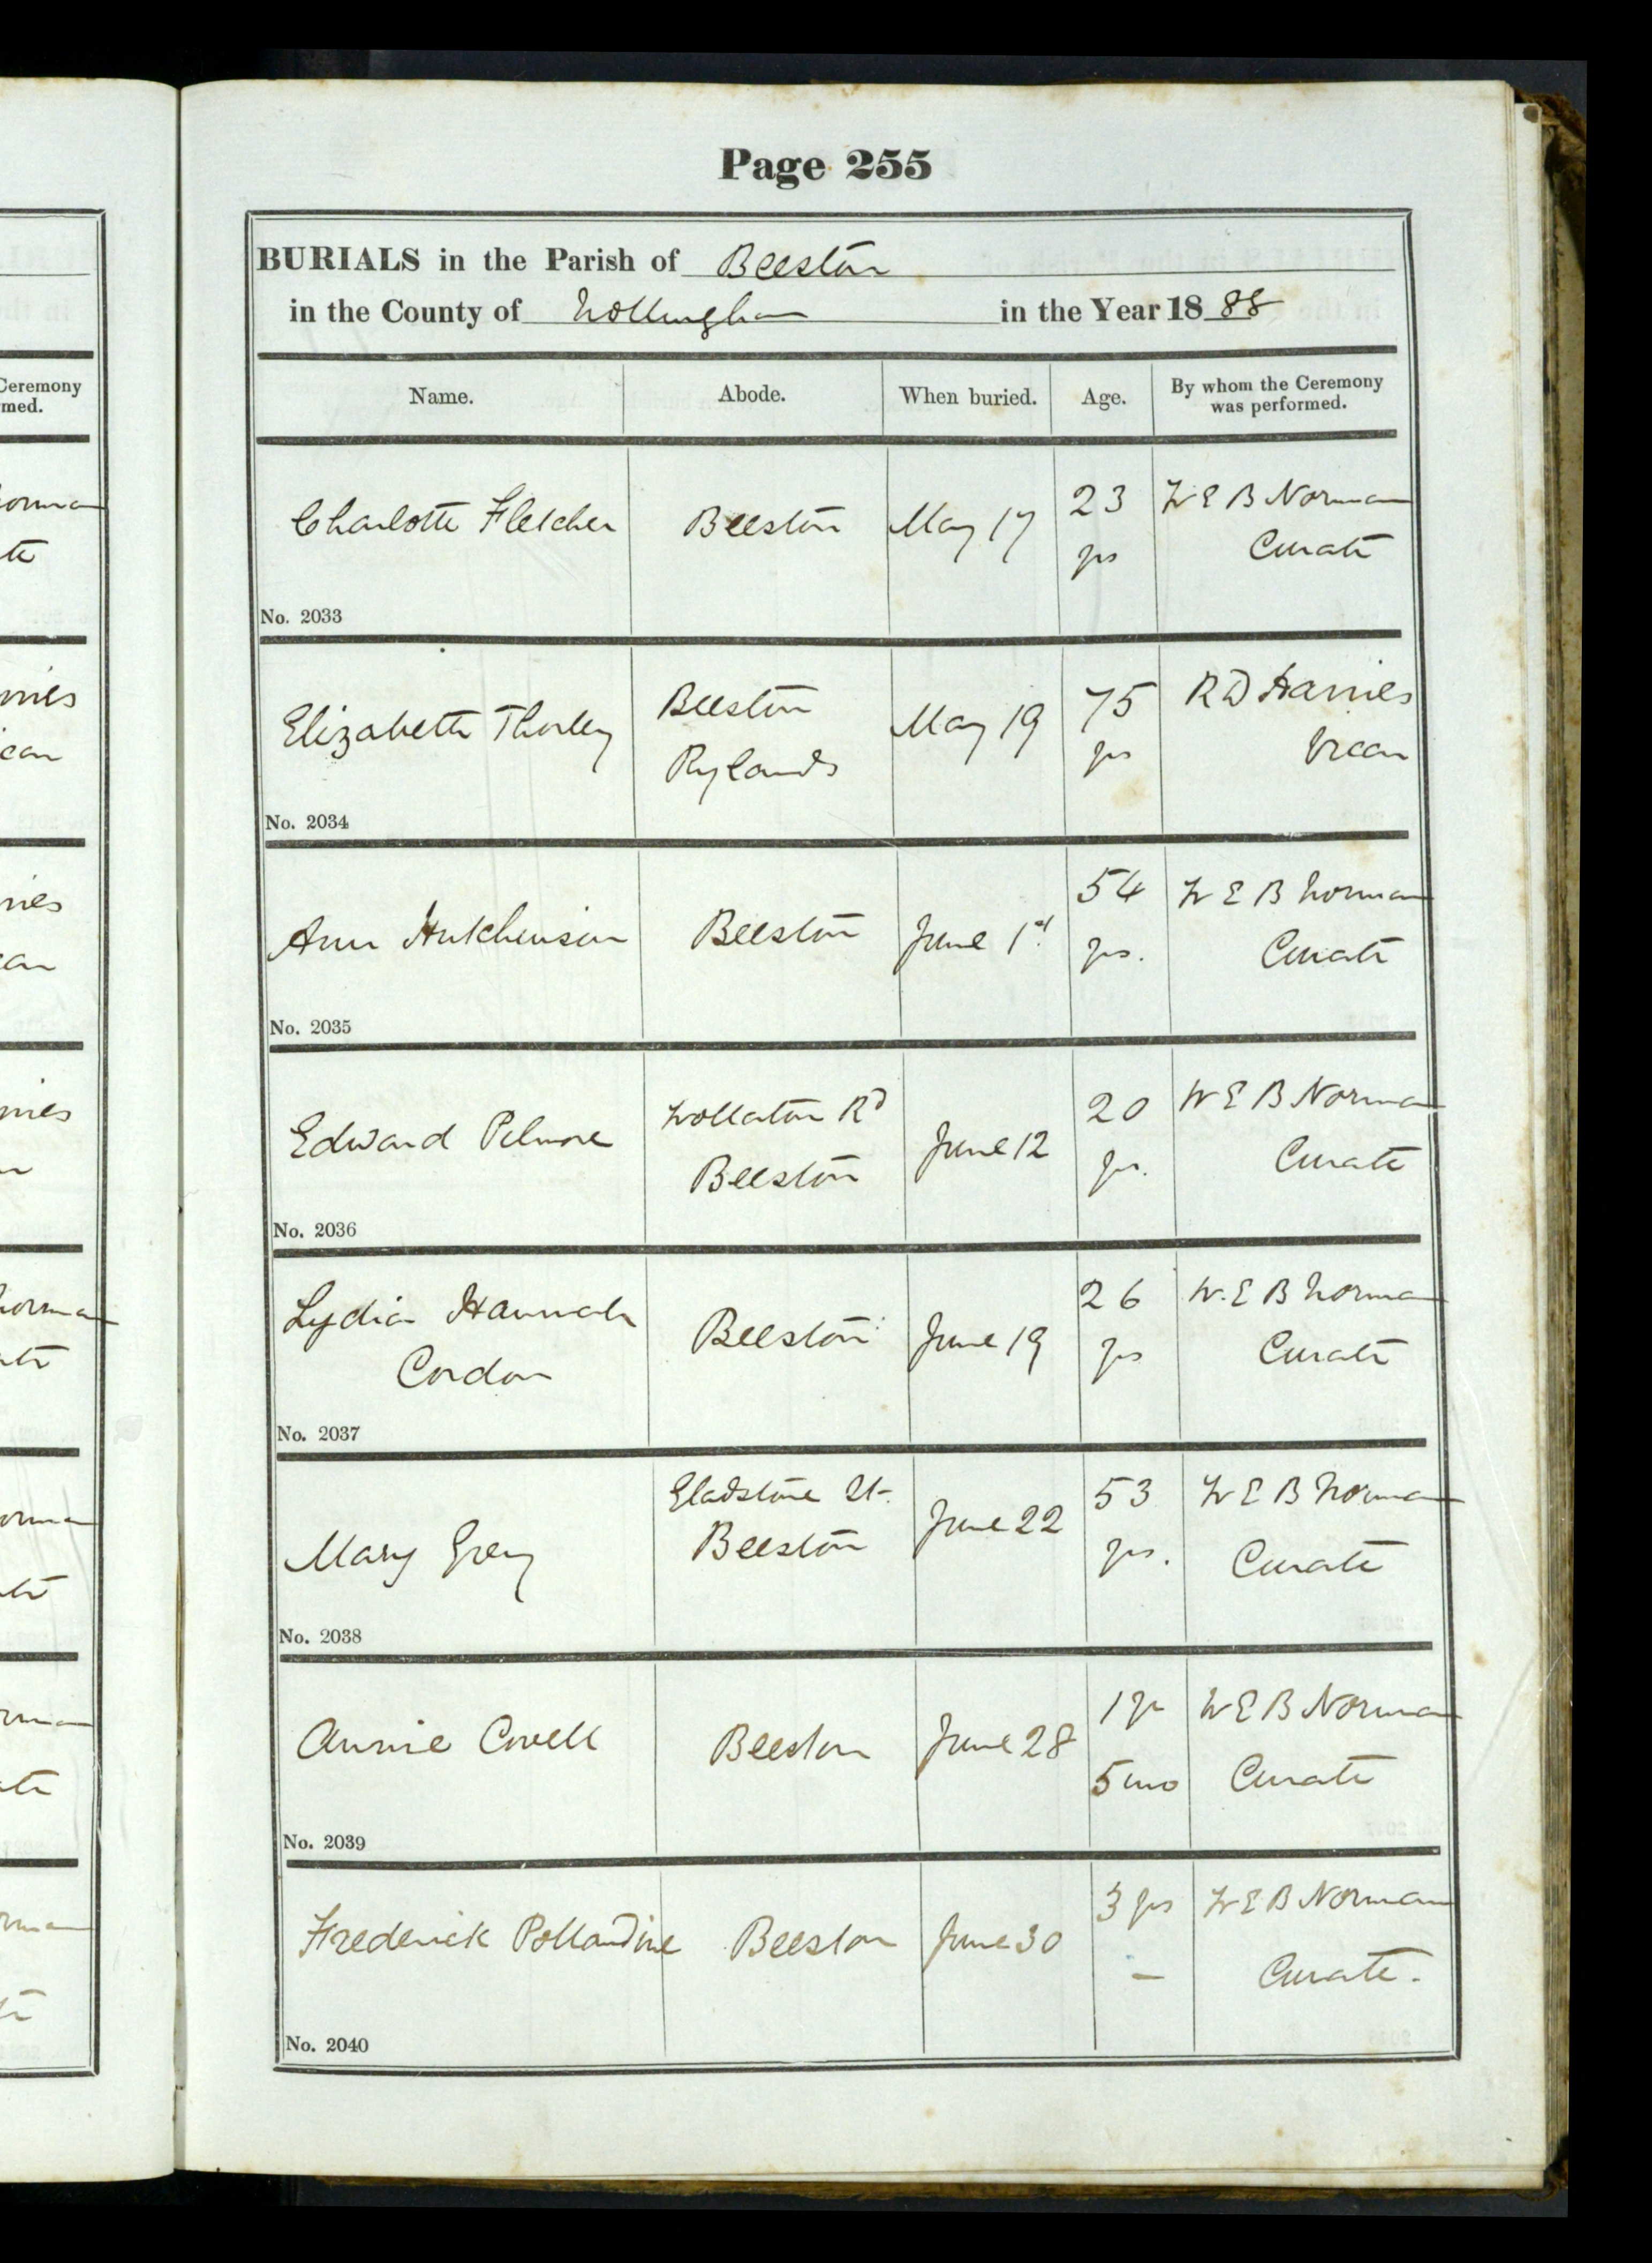 Page 255
BURIALS in the Parish of Beeston
in the County of Nottingham in the Year 1888
Name. Abode. When buried. Age. By whom the Ceremony was performed.
Charlotte Fletcher Beeston May 17 23 W E B Norman
yrs Curate
No. 2033
Elizabeth Thorley Beeston May 19 75 R D Harries
Rylands yrs Vicar
No. 2034
Ann Hutchinson Beeston June 1st 54 W E B Norman
yrs. Curate
No. 2035
Edward Pelmore Wollaton Rd June 12 20 W E B Norman
Beeston yrs. Curate
No. 2036
Lydia Hannah Beeston June 19 26 W. E B Norman
Cordon yrs Curate
No. 2037
Mary Grey Gladstone St. June 22 53 W E B Norman
Beeston yrs. Curate
No. 2038
Annie Covell Beeston June 28 1 yr W E B Norman
5 mo Curate
No. 2039
Frederick Pollandine Beeston June 30 3 yrs W E B Norman
— Curate.
No. 2040